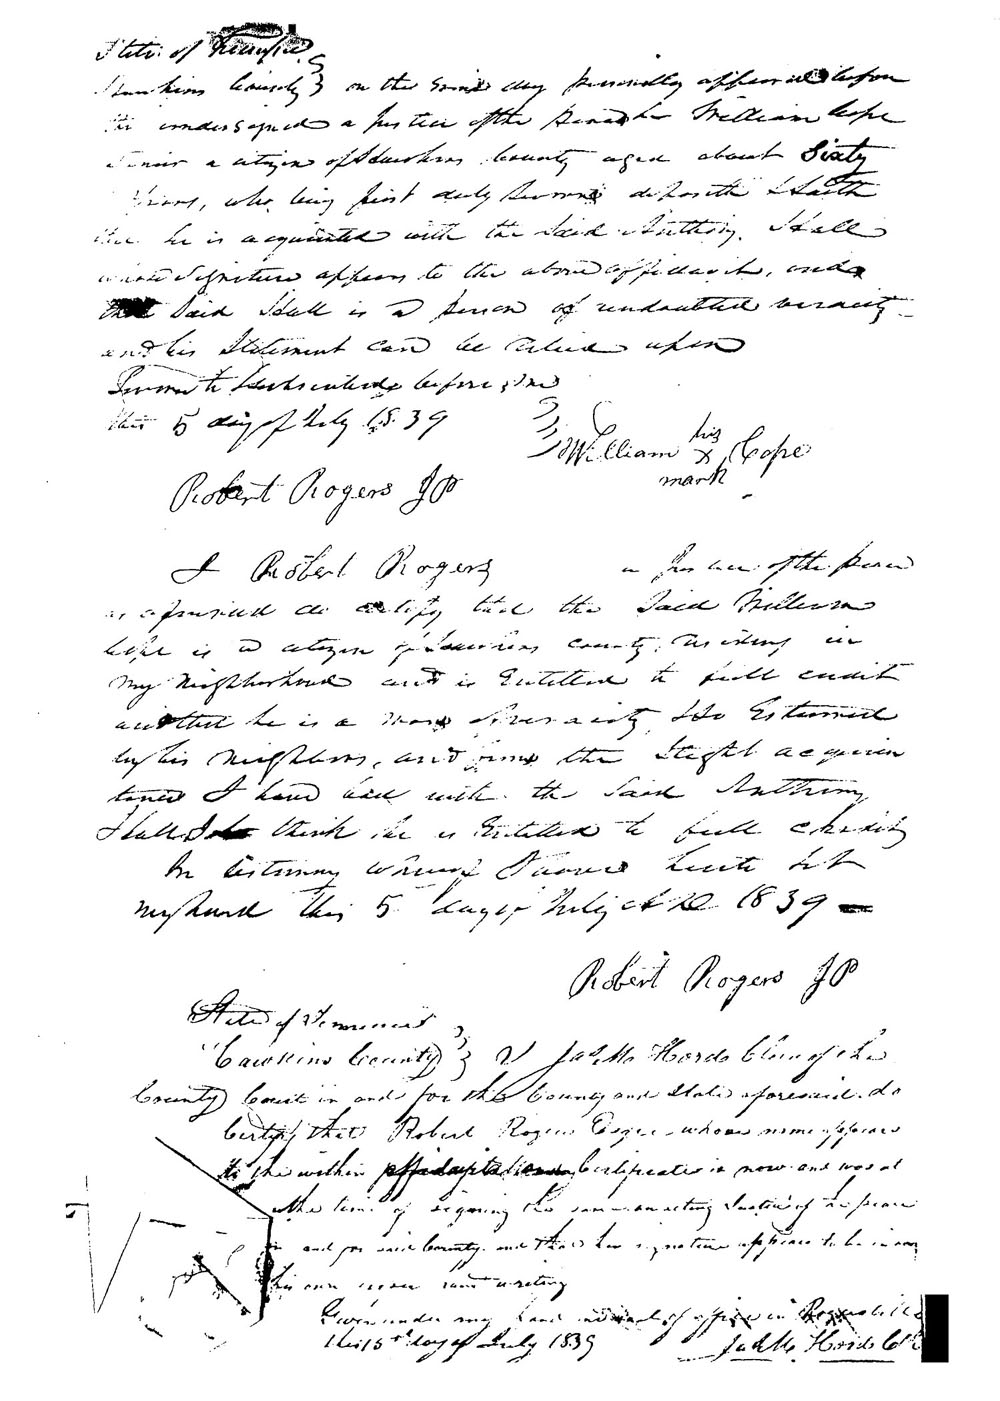 State of Tennessee
Hawkins County } on the Same day personally appeared before
the undersigned a Justice of the peace William Cope
Senior a citizen of Hawkins County aged about Sixty
Years, who being first duly Sworn deposeth & Saith
that he is acquainted with the Said Anthony Hall
whose Signature appears to the above affidavit, and
that Said Hall is a person of undoubted veracity
and his Statement can be relied upon
Sworn to & subscribed before me
this 5 day of July 1839
William his X mark Cope
Robert Rogers JP
I Robert Rogers a Justice of the peace
as aforesaid do certify that the Said William
Cope is a citizen of Hawkins county, residing in
my Neighborhood and is Entitled to full credit
and that he is a man of veracity & So Esteemed
by his Neighbors, and from the Slight acquain
tance I have had with the Said Anthony
Hall I think he is Entitled to full credit
In testimony whereof I have hereto Set
my hand this 5 day of July A D 1839
Robert Rogers JP
State of Tennessee
Hawkins County } I Hords Clerk of the
County Court in and for the County and State aforesaid do
Certify that Robert Rogers Esqr whose name appears
to the within Certificate is now and was at
the time of signing the same an acting Justice of the peace
in and for said County and that his signature appears to be in
his own hand writing
Given under my hand and seal of office in Rogersville
this 15th day of July 1839
Hords Clk